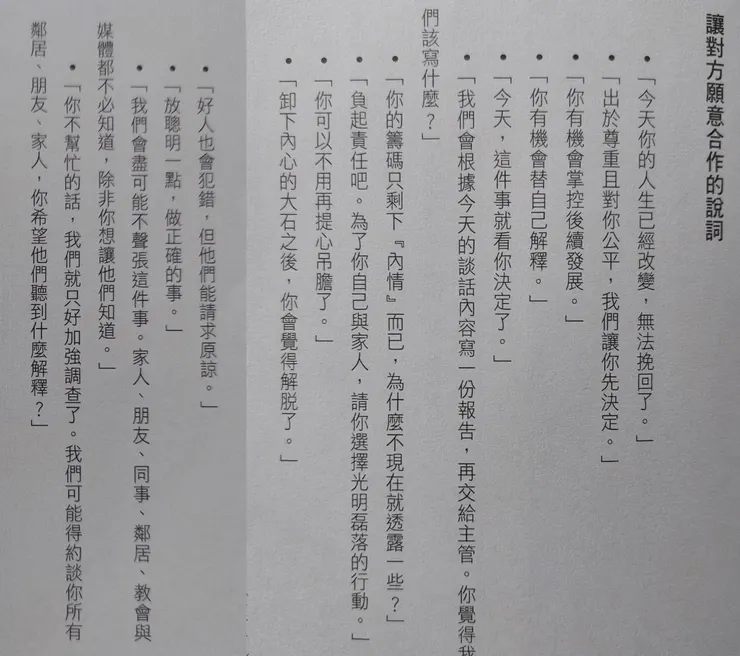 讓對方願意合作的說詞
•「今天你的人生已經改變，無法挽回了。」
•「出於尊重且對你公平，我們讓你先決定。」
•「你有機會掌控後續發展。」
•「你有機會替自己解釋。」
•「今天，這件事就看你決定了。」
•「我們會根據今天的談話內容寫一份報告，再交給主管。你覺得我
們該寫什麼？」
•「你的籌碼只剩下『內情』而已，為什麼不現在就透露一些？」
•「負起責任吧。為了你自己與家人，請你選擇光明磊落的行動。」
•「你可以不用再提心吊膽了。」
•「卸下內心的大石之後，你會覺得解脫了。」
•「好人也會犯錯，但他們能請求原諒。」
•「放聰明一點，做正確的事。」
•「我們會盡可能不聲張這件事。家人、朋友、同事、鄰居、教會與
媒體都不必知道，除非你想讓他們知道。」
•「你不幫忙的話，我們就只好加強調查了。我們可能得約談你所有
鄰居、朋友、家人，你希望他們聽到什麼解釋？」